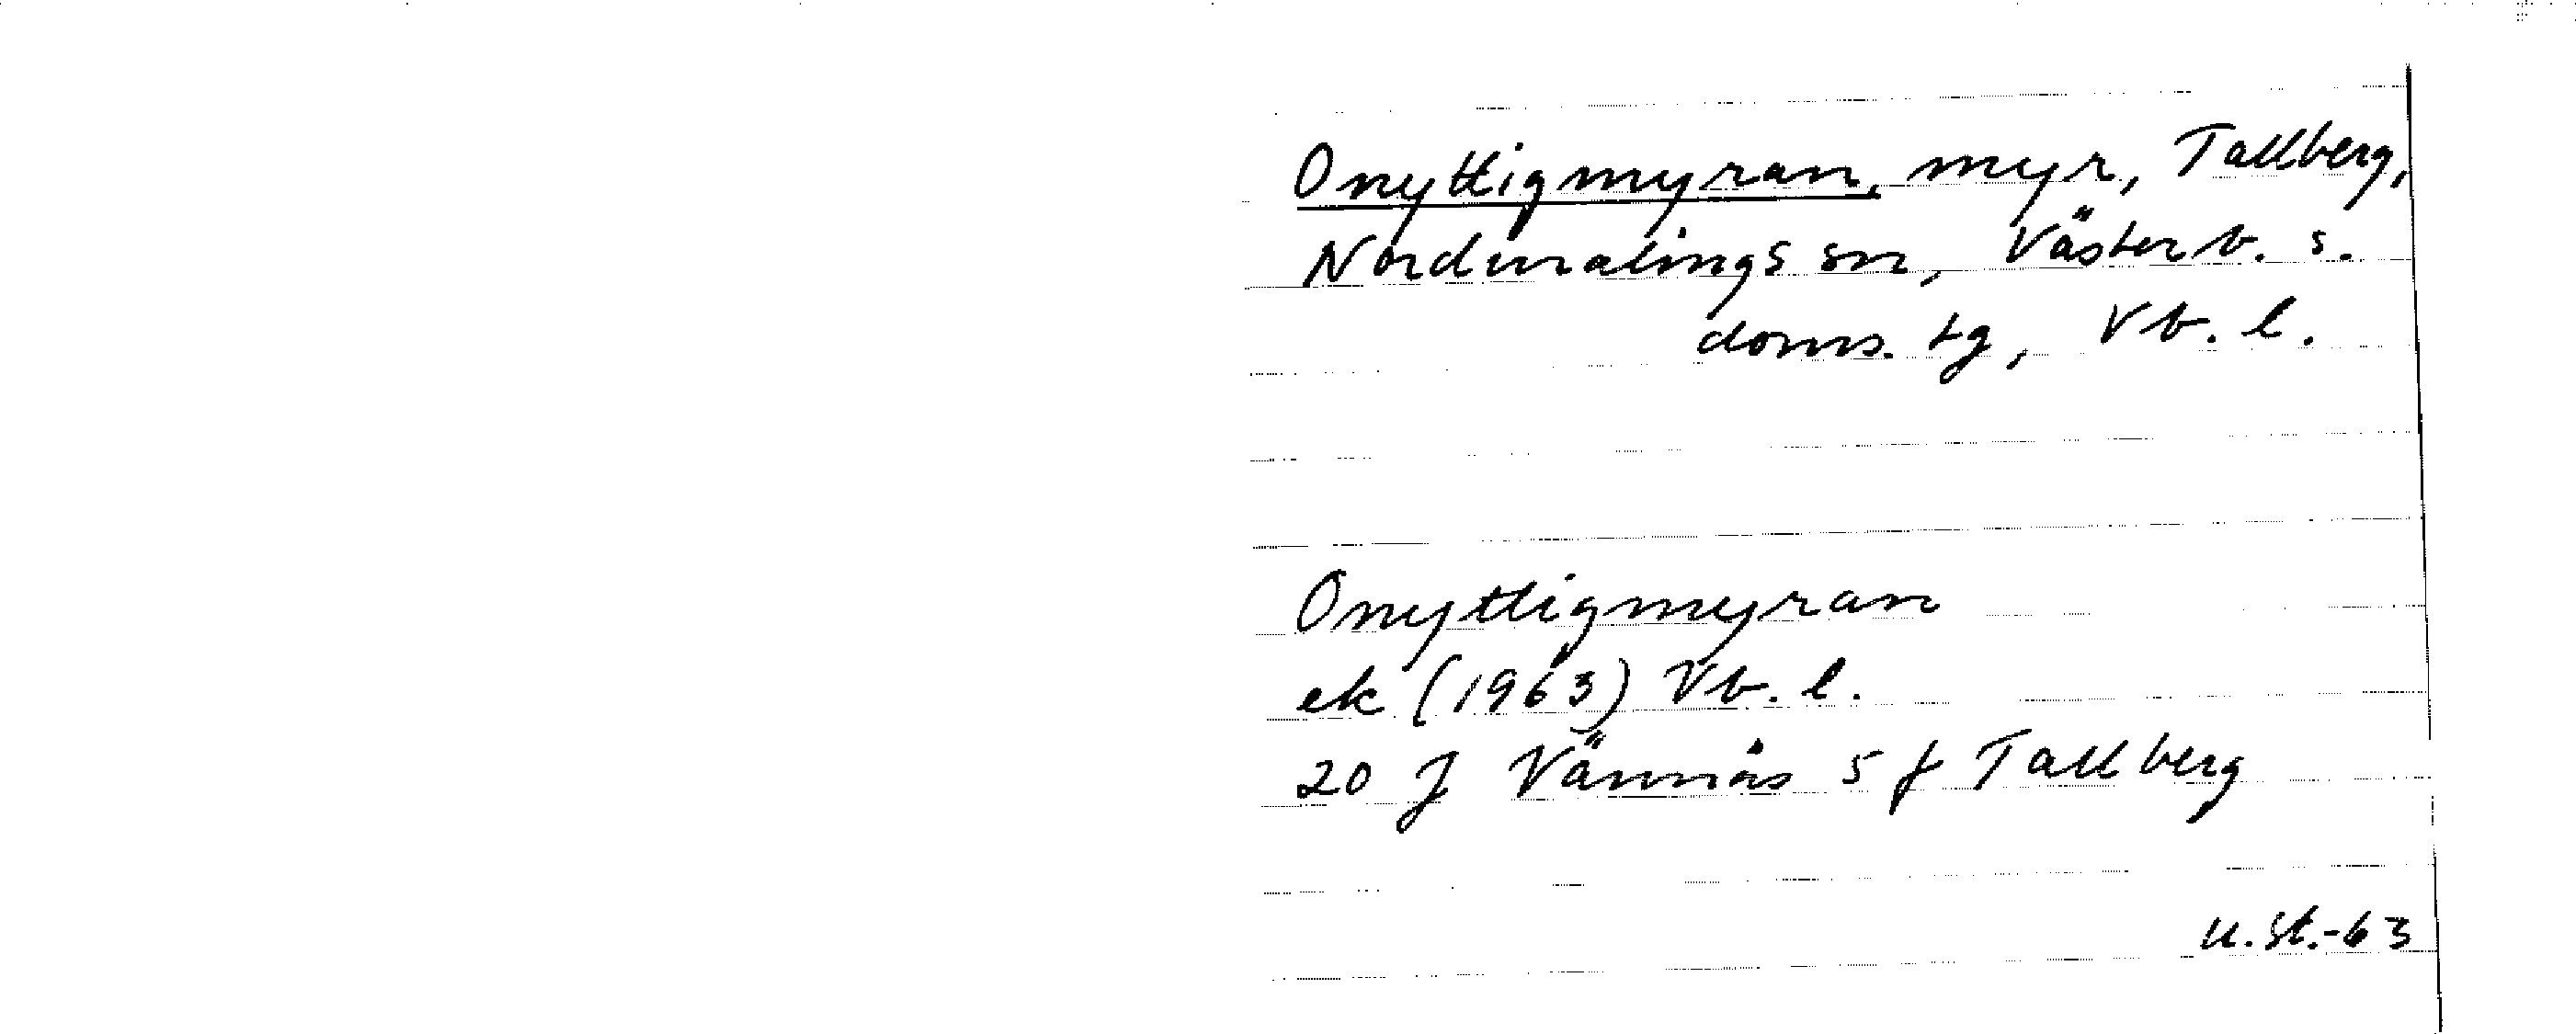 Onyttigmyran, myr, Tallberg,
Nordmalings sn, Västerb. s.
doms. tg, Vb. l.
Onyttigmyran
ek (1963) Vb. l.
20 J Vännäs 5 f Tallberg
U. St.-63